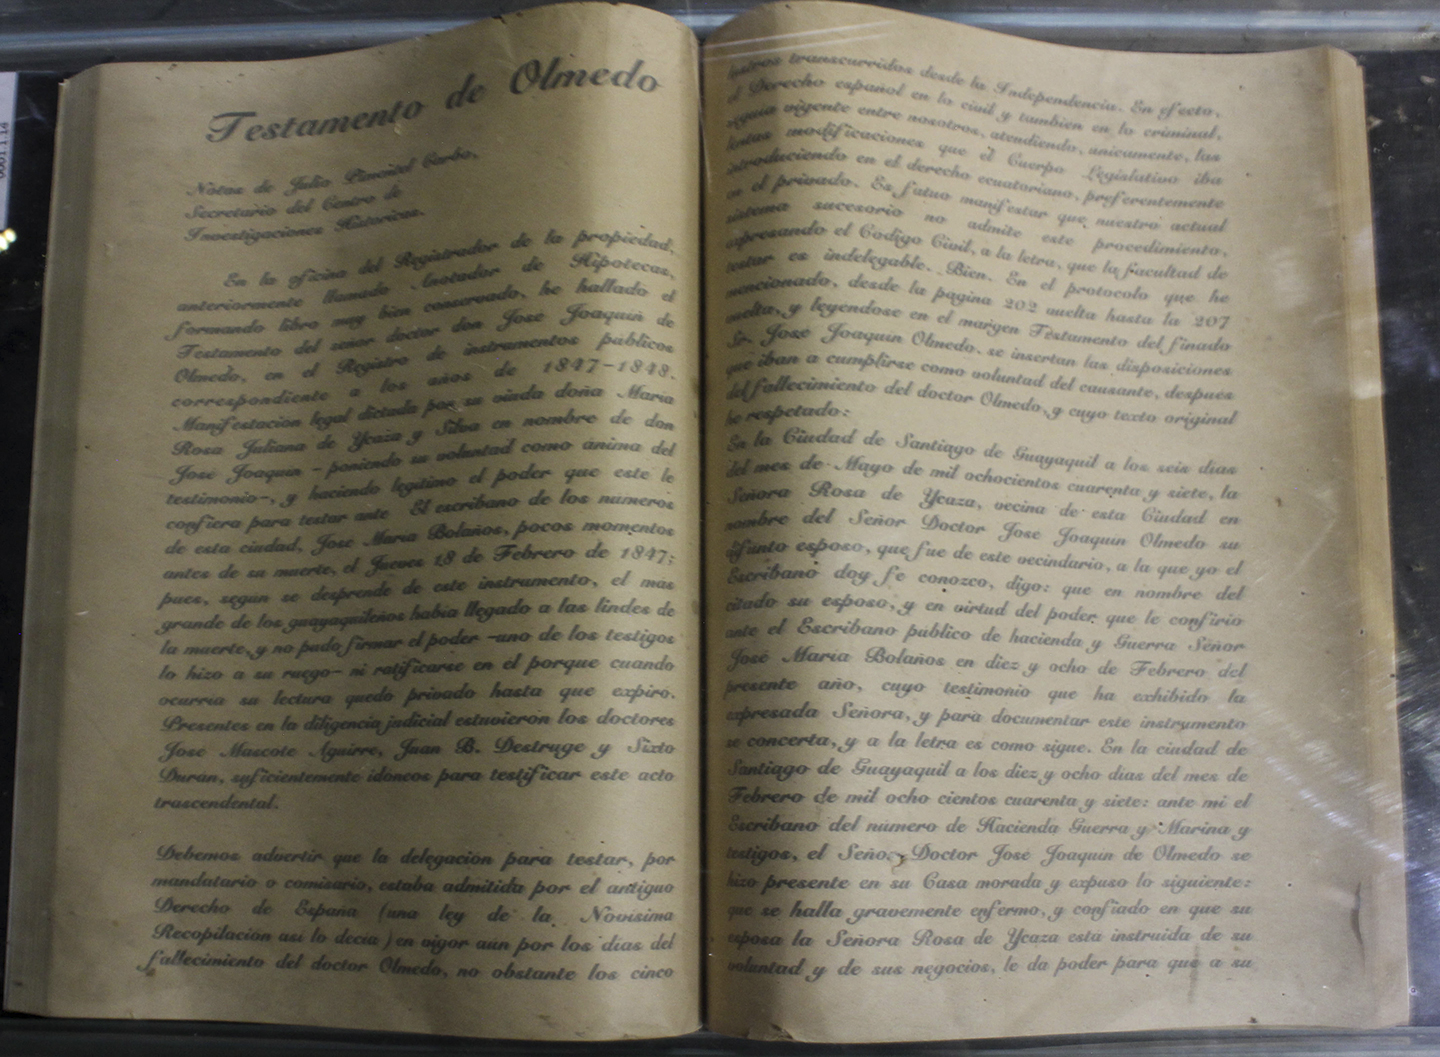 Testamento de Olmedo
Notas de Julio Pimentel Carbo,
Secretario del Centro de
Investigaciones Históricas.
En la oficina del Registrador de la propiedad,
anteriormente llamado Anotador de Hipotecas,
formando libro muy bien conservado, he hallado el
Testamento del señor doctor don José Joaquín de
Olmedo, en el Registro de instrumentos públicos
correspondiente a los años de 1847-1848.
Manifestación legal dictada por su viuda doña María
Rosa Juliana de Ycaza y Silva en nombre de don
José Joaquín - poniendo su voluntad como ánima del
testimonio-, y haciendo legítimo el poder que este le
confiera para testar ante El escribano de los números
de esta ciudad, José María Bolaños, pocos momentos
antes de su muerte, el Jueves 18 de Febrero de 1847;
pues, según se desprende de este instrumento, el mas
grande de los guayaquileños había llegado a las lindes de
la muerte, y no pudo firmar el poder -uno de los testigos
lo hizo a su ruego- ni ratificarse en el porque cuando
ocurría su lectura quedó privado hasta que expiro.
Presentes en la diligencia judicial estuvieron los doctores
José Mascote Aguirre, Juan B. Destruge y Sixto
Durán, suficientemente idoneos para testificar este acto
trascendental.
Debemos advertir que la delegación para testar, por
mandatario o comisario, estaba admitida por el antiguo
Derecho de España (una ley de la Novísima
Recopilación así lo decía) en vigor aún por los días del
fallecimiento del doctor Olmedo, no obstante los cinco
lustros transcurridos desde la Independencia. En efecto,
el Derecho español en lo civil y también en lo criminal,
seguía vigente entre nosotros, atendiendo, unicamente, las
lentas modificaciones que el Cuerpo Legislativo iba
introduciendo en el derecho ecuatoriano, preferentemente
en el privado. Es fatuo manifestar que nuestro actual
sistema sucesorio no admite este procedimiento,
expresando el Codigo Civil, a la letra, que la facultad de
testar es indelegable. Bien. En el protocolo que he
mencionado, desde la página 202 vuelta hasta la 207
vuelta, y leyendose en el margen Testamento del finado
Sr. José Joaquín Olmedo, se insertan las disposiciones
que iban a cumplirse como voluntad del causante, después
del fallecimiento del doctor Olmedo, y cuyo texto original
he respetado:
En la Ciudad de Santiago de Guayaquil a los seis días
del mes de Mayo de mil ochocientos cuarenta y siete, la
Señora Rosa de Ycaza, vecina de esta Ciudad en
nombre del Señor Doctor José Joaquín Olmedo su
difunto esposo, que fue de este vecindario, a la que yo el
Escribano doy fe conozco, digo: que en nombre del
citado su esposo, y en virtud del poder que le confirió
ante el Escribano público de hacienda y Guerra Señor
José María Bolaños en diez y ocho de Febrero del
presente año, cuyo testimonio que ha exhibido la
expresada Señora, y para documentar este instrumento
se concerta, y a la letra es como sigue. En la ciudad de
Santiago de Guayaquil a los diez y ocho días del mes de
Febrero de mil ocho cientos cuarenta y siete: ante mi el
Escribano del número de Hacienda Guerra y Marina y
testigos, el Señor Doctor José Joaquín de Olmedo se
hizo presente en su Casa morada y expuso lo siguiente:
que se halla gravemente enfermo, y confiado en que su
esposa la Señora Rosa de Ycaza está instruida de su
voluntad y de sus negocios, le da poder para que a su
0001.1.14